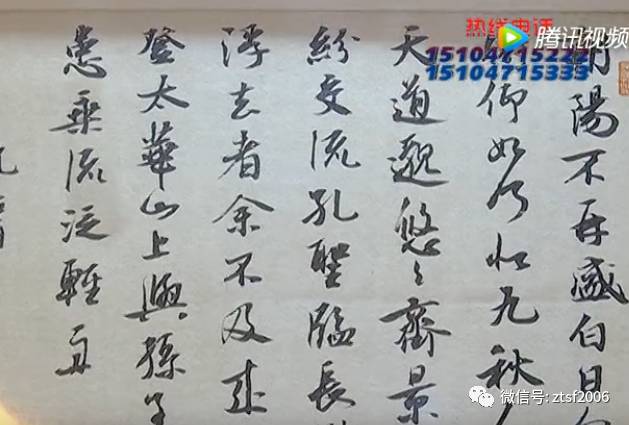 热线电话
15104715222
15104715333
腾讯视频
陽不再盛白日
仰如何似九秋
天道邈悠〻齊景
紛交流孔聖臨長
浮去者余不及來
登太華山上與孫子
患乘流泛輕舟
微信号: ztsf2006